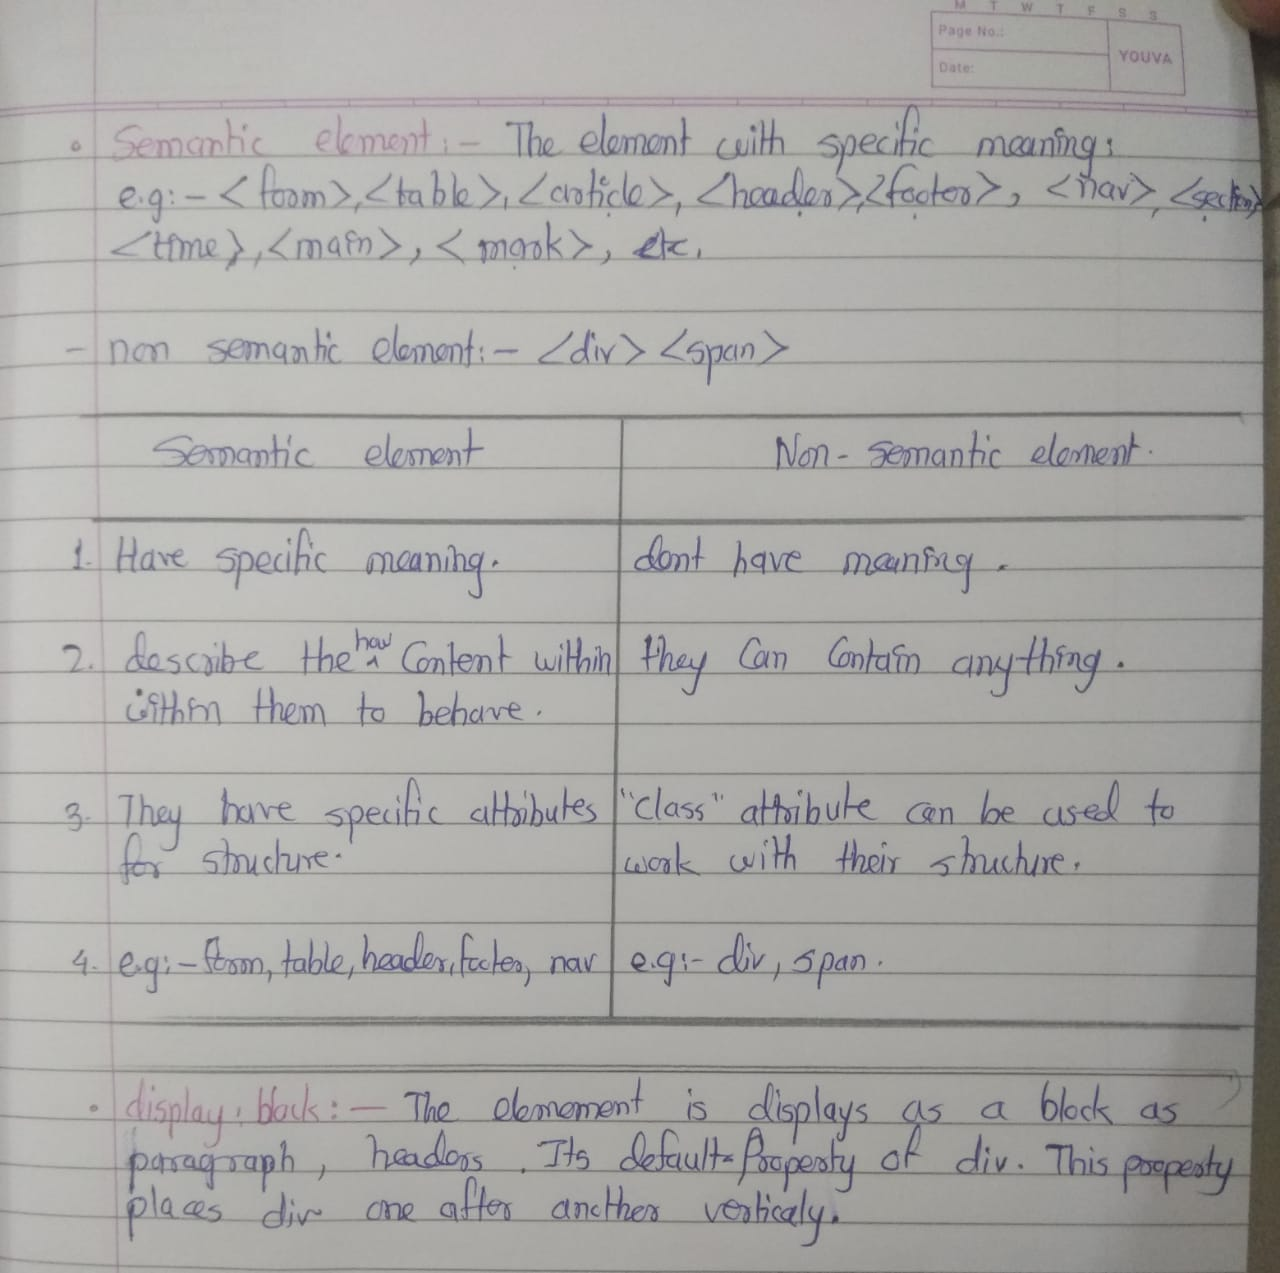 M T W T F S S
Page No.:
YOUVA
Date:
• Semantic element :- The element with specific meaning;
e.g:- <form>, <table>, <article>, <header>, <footer>, <nav>, <section>
<time>, <main>, <mark>, etc.
- non semantic element:- <div> <span>
Semantic element Non-semantic element.
1. Have specific meaning. dont have meaning.
2. describe the how Content within they Can Contain anything.
within them to behave.
3. They have specific attributes "class" attribute can be used to
for structure. work with their structure.
4. e.g:- form, table, header, footer, nav e.g:- div, span.
• display: block:- The elemement is displays as a block as
paragraph, headers. Its default Property of div. This property
places div one after another verticaly.